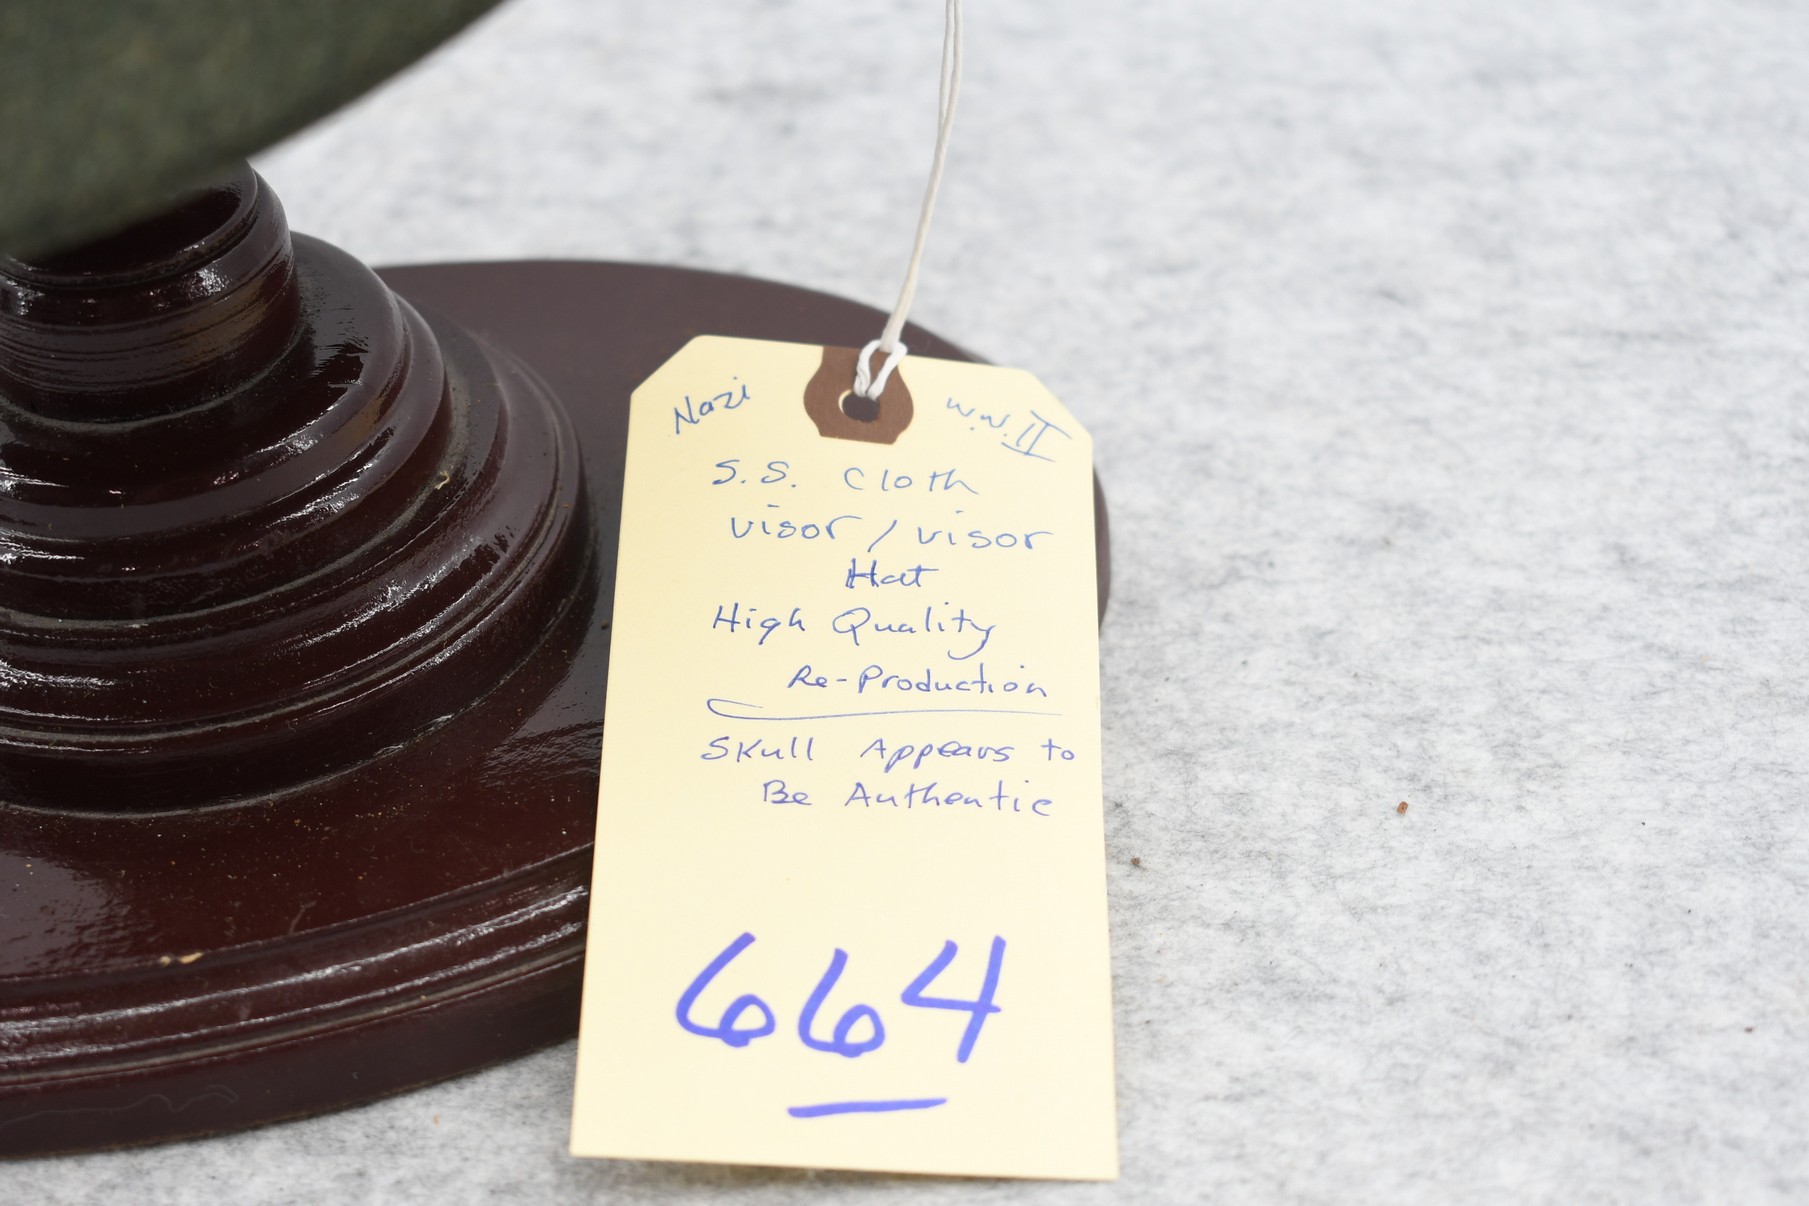 Nazi
W.W.II
S.S. Cloth
visor / visor
Hat
High Quality
Re-Production
Skull Appears to
Be Authentic
664